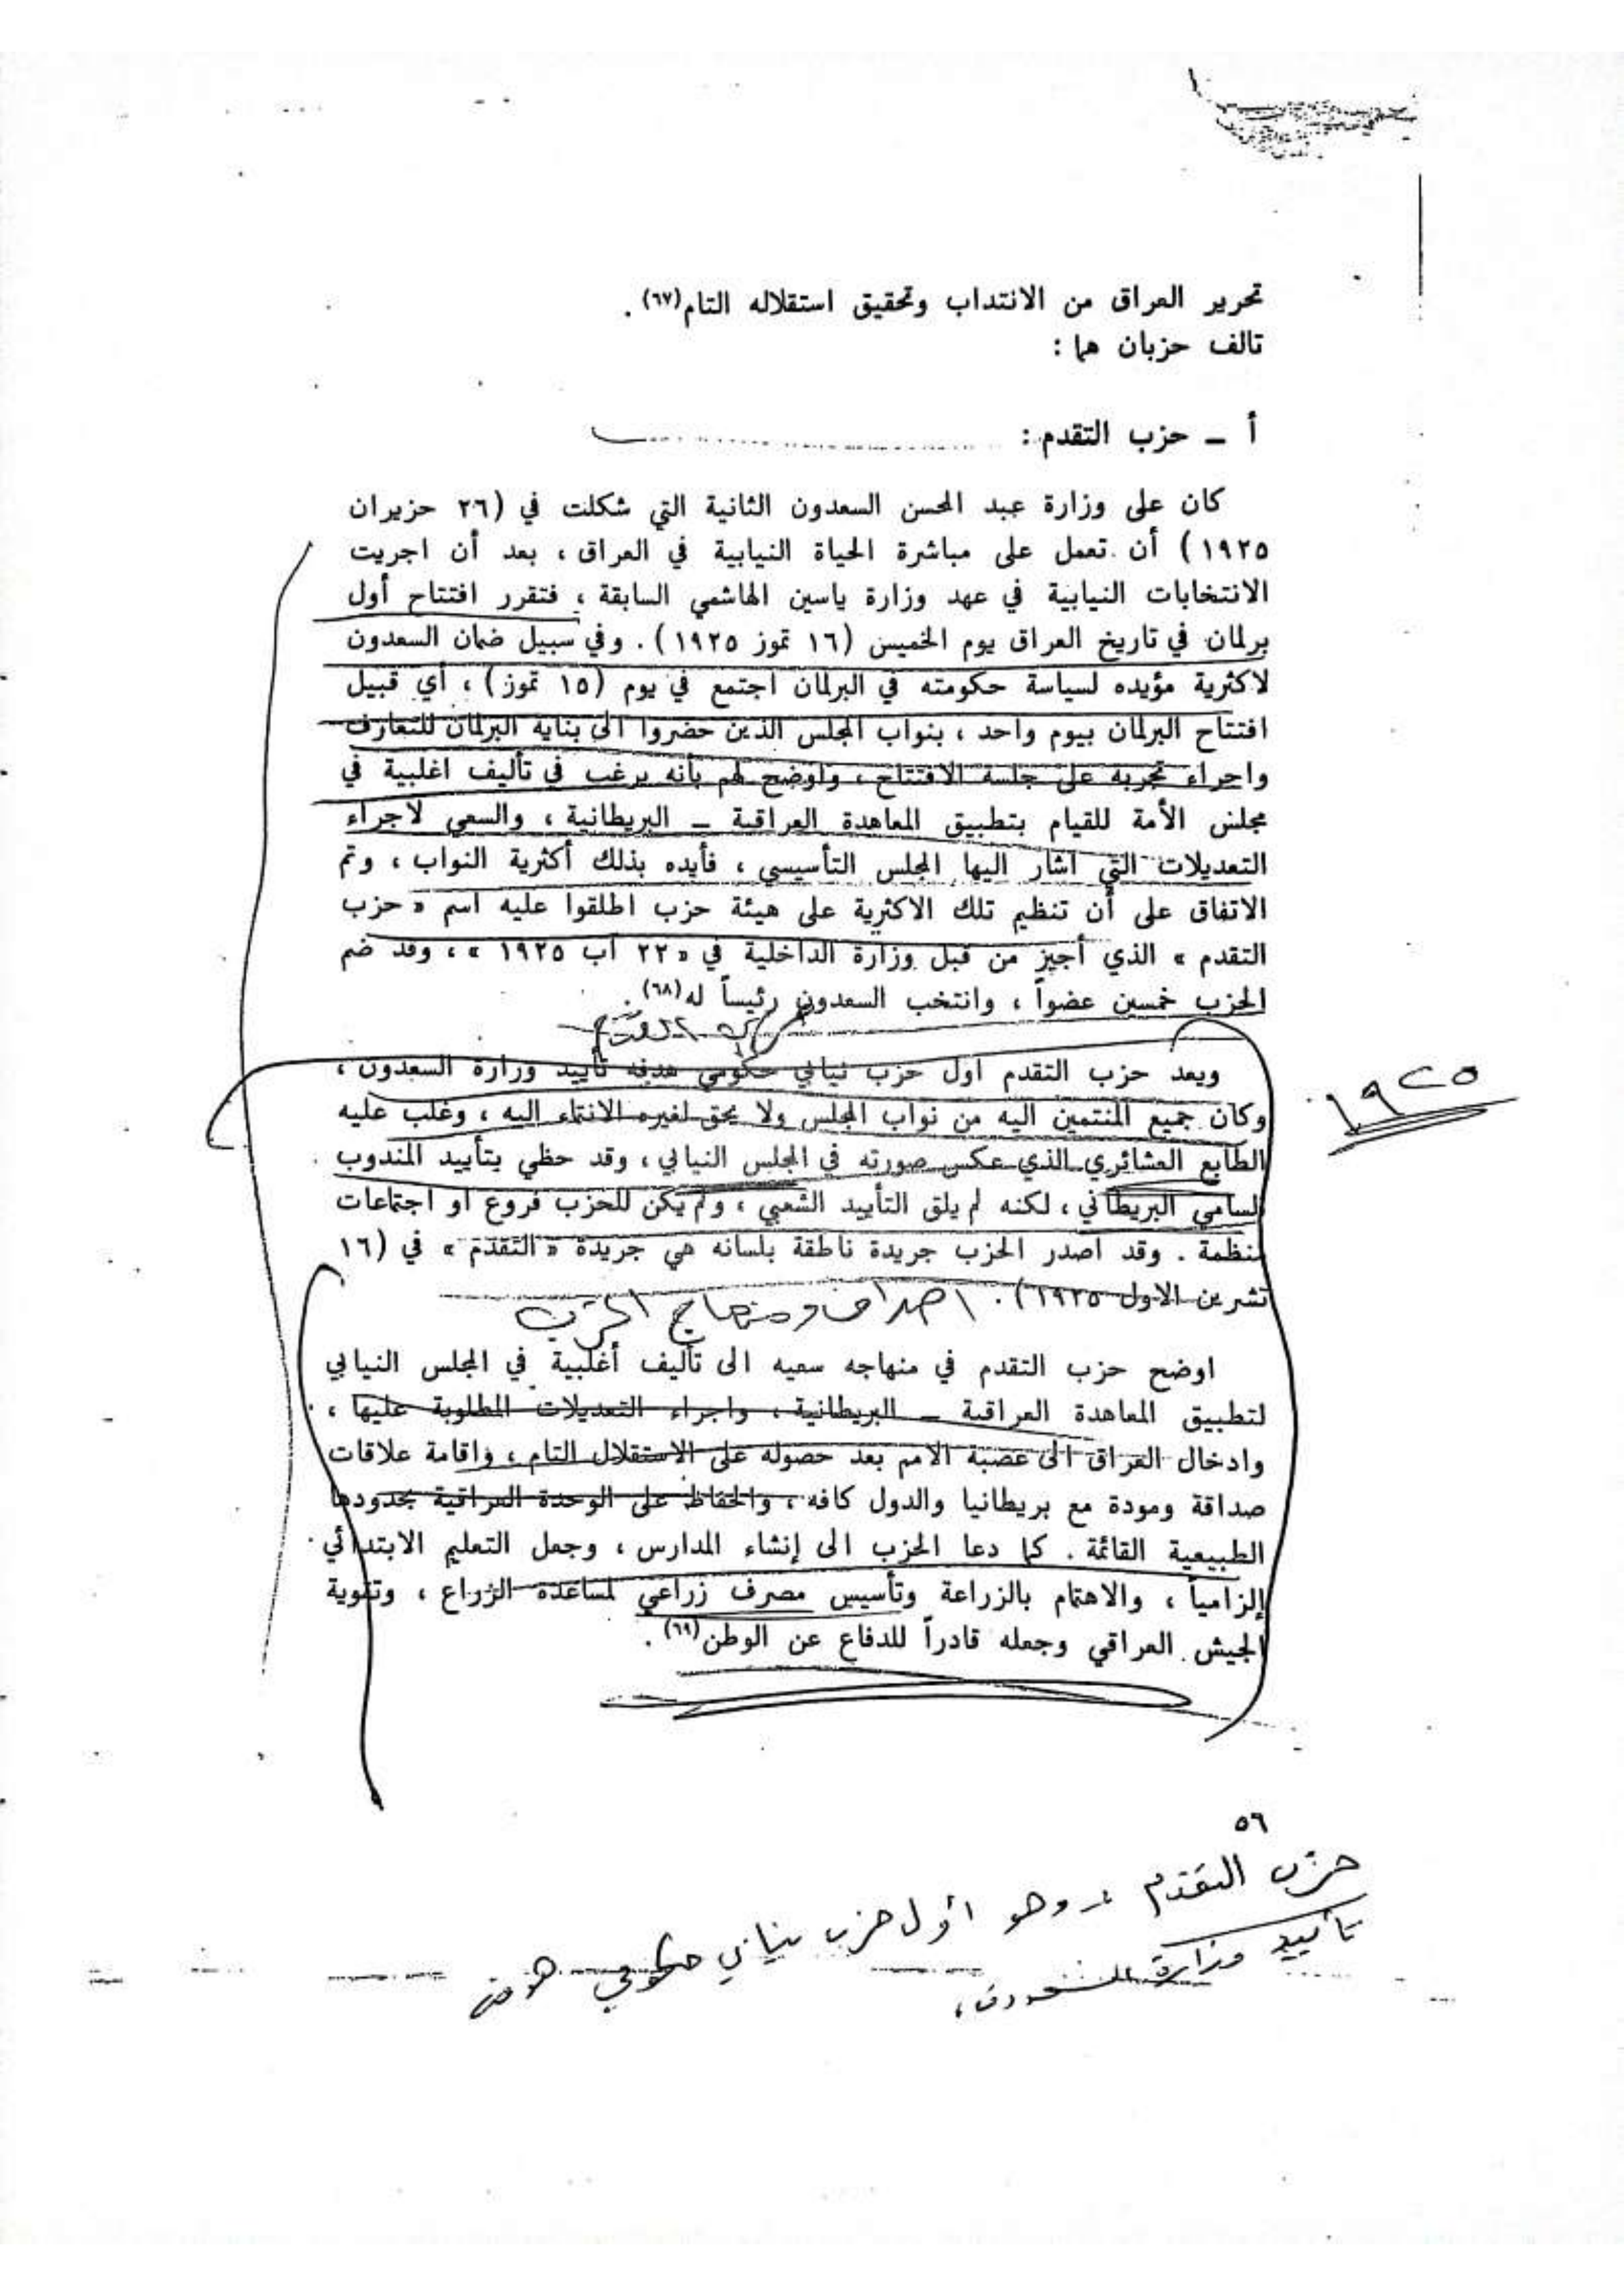 تحرير العراق من الانتداب وتحقيق استقلاله التام(٦٧) .
تالف حزبان هما :
أ ـ حزب التقدم :
كان على وزارة عبد المحسن السعدون الثانية التي شكلت في (٢٦ حزيران
١٩٢٥) أن تعمل على مباشرة الحياة النيابية في العراق ، بعد أن اجريت
الانتخابات النيابية في عهد وزارة ياسين الهاشمي السابقة ، فتقرر افتتاح أول
برلمان في تاريخ العراق يوم الخميس (١٦ تموز ١٩٢٥) . وفي سبيل ضمان السعدون
لاكثرية مؤيده لسياسة حكومته في البرلمان اجتمع في يوم (١٥ تموز) ، أي قبيل
افتتاح البرلمان بيوم واحد ، بنواب المجلس الذين حضروا الى بناية البرلمان للتعارف
واجراء تجربه على جلسة الافتتاح ، واوضح لهم بأنه يرغب في تأليف اغلبية في
مجلس الأمة للقيام بتطبيق المعاهدة العراقية ـ البريطانية ، والسعي لاجراء
التعديلات التي اشار اليها المجلس التأسيسي ، فأيده بذلك أكثرية النواب ، وتم
الاتفاق على أن تنظيم تلك الاكثرية على هيئة حزب اطلقوا عليه اسم « حزب
التقدم » الذي أجيز من قبل وزارة الداخلية في « ٢٢ آب ١٩٢٥ » ، وقد ضم
الحزب خمسين عضواً ، وانتخب السعدون رئيساً له(٦٨) .
حزب التقدم
ويعد حزب التقدم اول حزب نيابي حكومي هدفه تأييد وزارة السعدون ،
١٩٢٥
وكان جميع المنتمين اليه من نواب المجلس ولا يحق لغيره الانتماء اليه ، وغلب عليه
الطابع العشائري الذي عكس صورته في المجلس النيابي ، وقد حظي بتأييد المندوب
السامي البريطاني ، لكنه لم يلق التأييد الشعبي ، ولم يكن للحزب فروع او اجتماعات
منظمة . وقد اصدر الحزب جريدة ناطقة بلسانه هي جريدة « التقدم » في (١٦
تشرين الاول ١٩٢٥) .
اهداف ومنهاج الحزب
اوضح حزب التقدم في منهاجه سعيه الى تأليف أغلبية في المجلس النيابي
لتطبيق المعاهدة العراقية ـ البريطانية ، واجراء التعديلات المطلوبة عليها ،
وادخال العراق الى عصبة الامم بعد حصوله على الاستقلال التام ، واقامة علاقات
صداقة ومودة مع بريطانيا والدول كافه ، والحفاظ على الوحدة العراقية بحدودها
الطبيعية القائمة . كما دعا الحزب الى إنشاء المدارس ، وجعل التعليم الابتدائي
إلزامياً ، والاهتمام بالزراعة وتأسيس مصرف زراعي لمساعدة الزراع ، وتقوية
الجيش العراقي وجعله قادراً للدفاع عن الوطن(٦٩) .
٥٦
حزب التقدم :ـ وهو أول حزب نيابي حكومي هدفه
تأييد وزارة السعدون ،